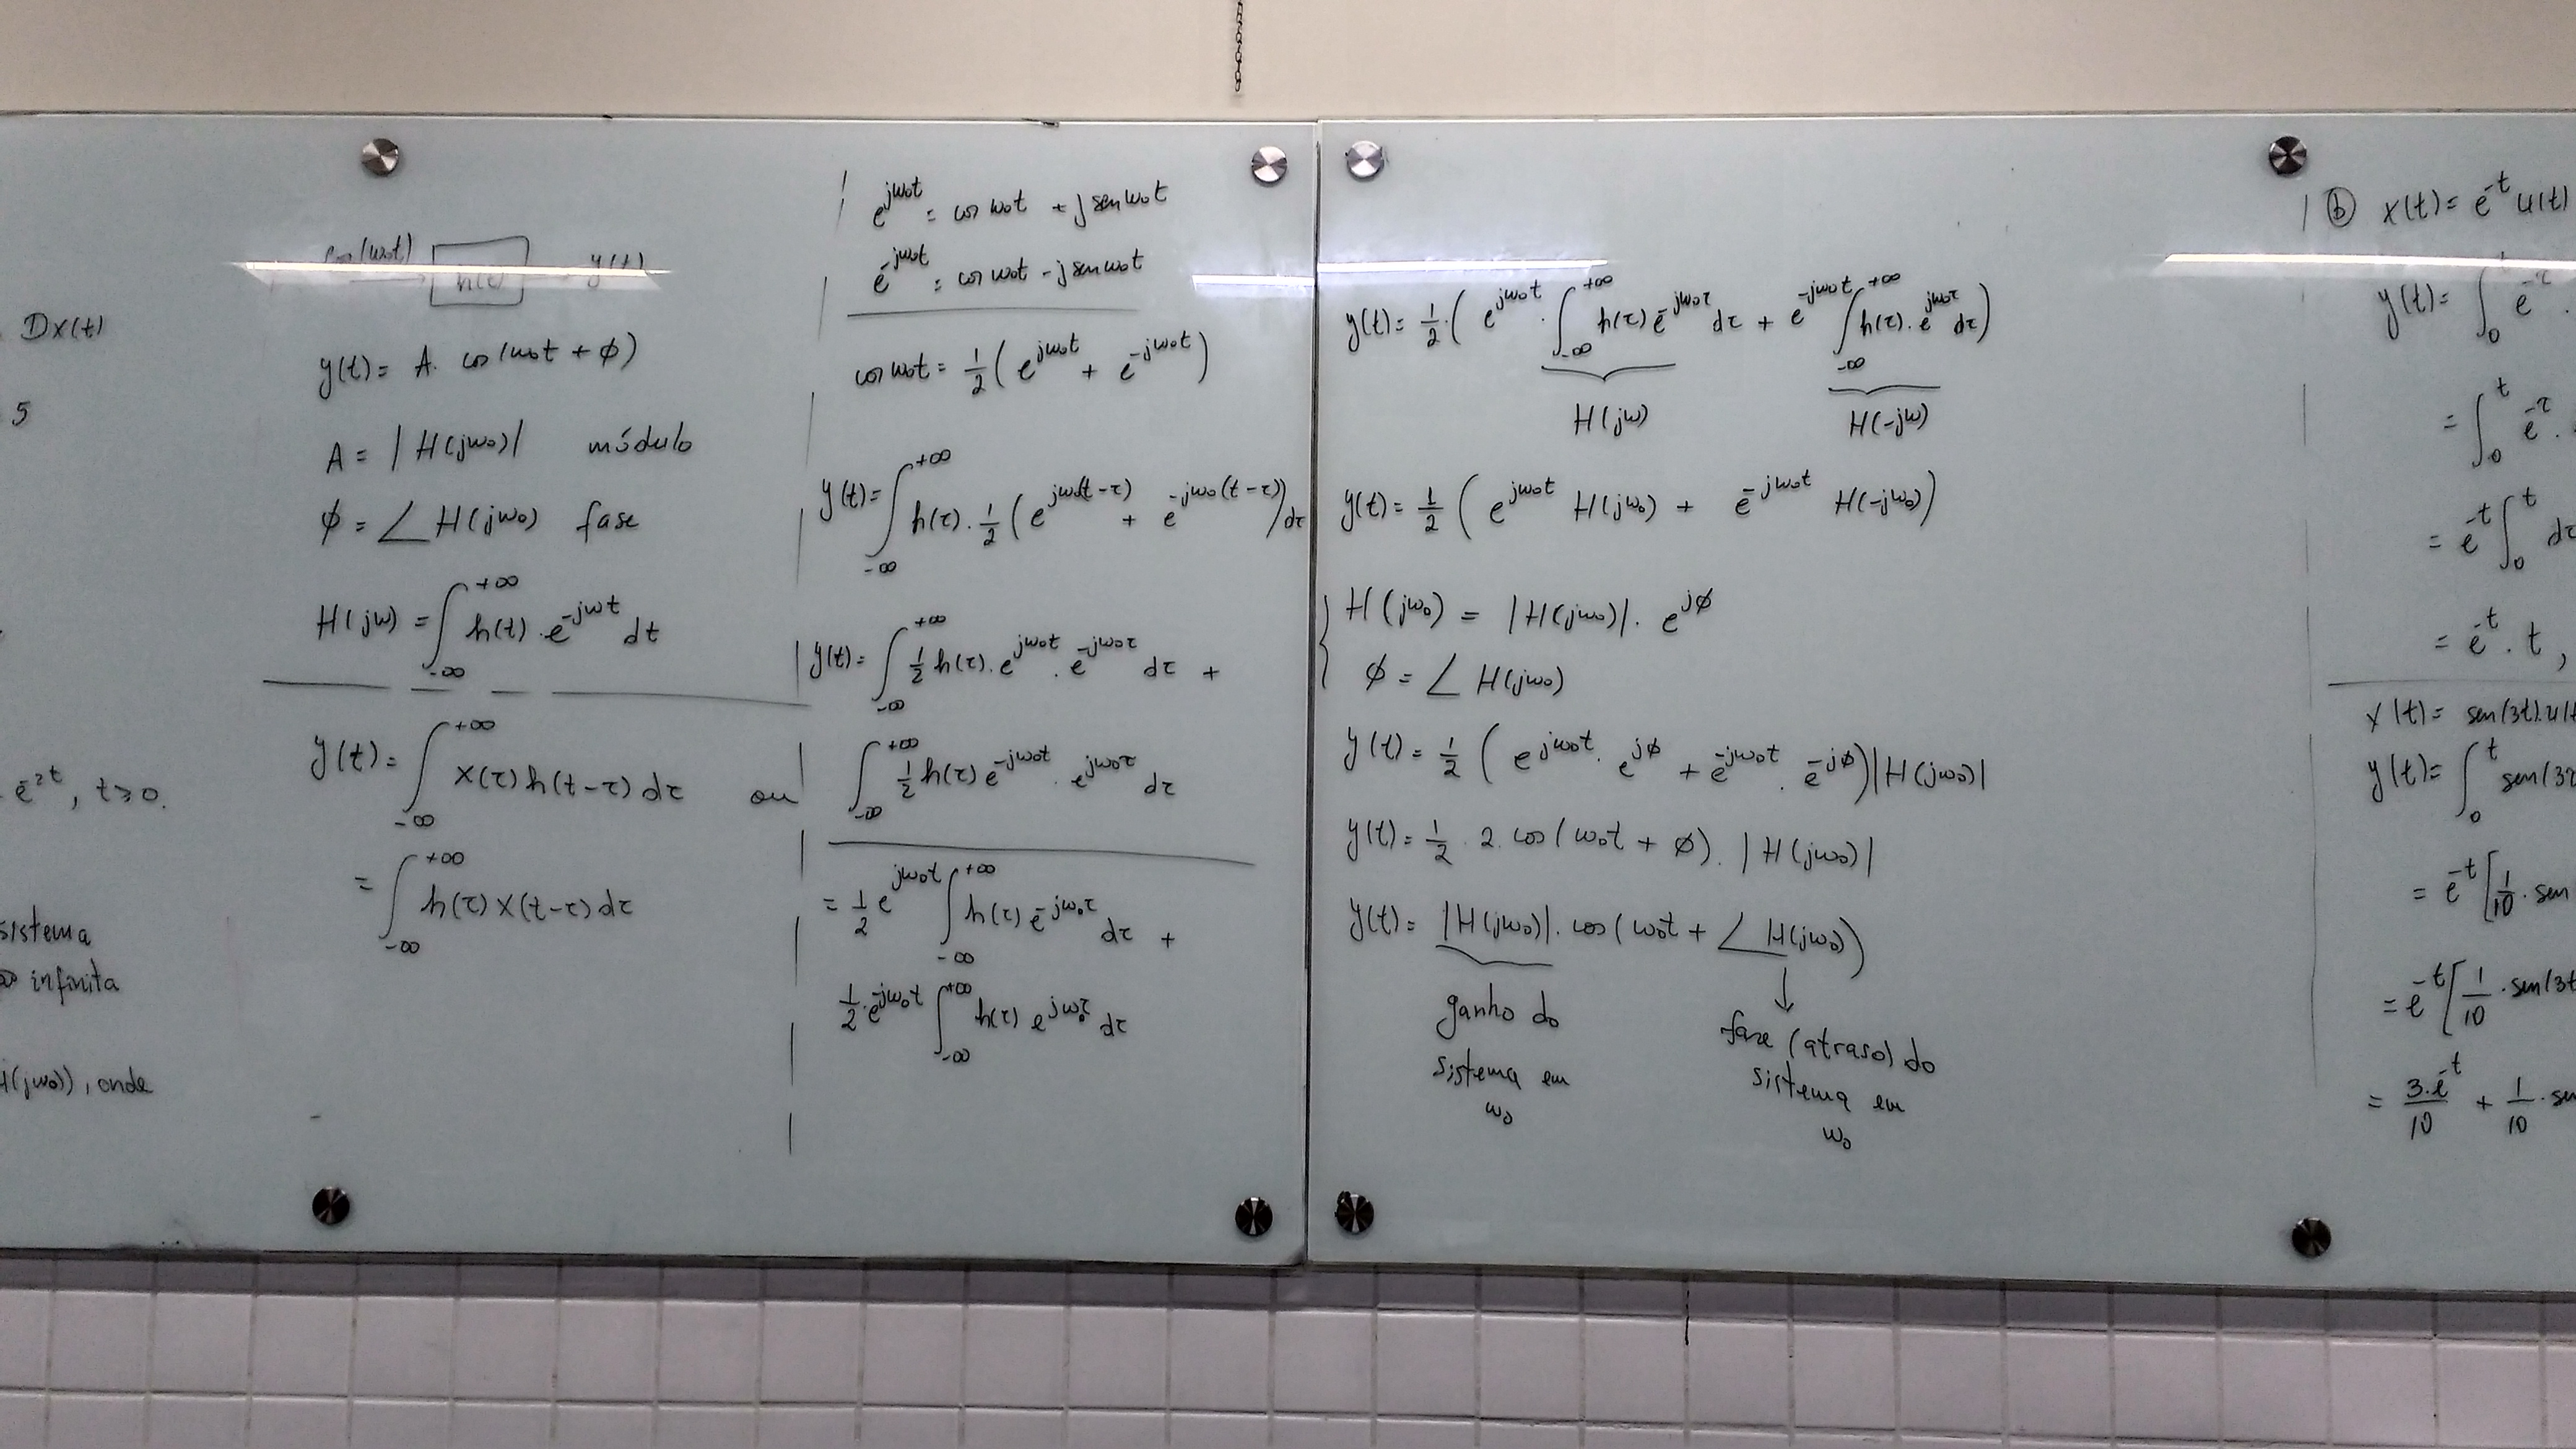 Dx(t)
5
e^{-2t}, t ≥ 0.
sistema
infinita
H(jω₀)), onde
cos(ω₀t) → h(t) → y(t)
y(t) = A. cos(ω₀t + φ)
A = |H(jω₀)| módulo
φ = ∠ H(jω₀) fase
H(jω) = ∫_{-∞}^{+∞} h(t) . e^{-jωt} dt
y(t) = ∫_{-∞}^{+∞} x(τ) h(t-τ) dτ ou
= ∫_{-∞}^{+∞} h(τ) x(t-τ) dτ
e^{jω₀t} = cos ω₀t + j sen ω₀t
e^{-jω₀t} = cos ω₀t - j sen ω₀t
cos ω₀t = 1/2 (e^{jω₀t} + e^{-jω₀t})
y(t) = ∫_{-∞}^{+∞} h(τ) . 1/2 (e^{jω₀(t-τ)} + e^{-jω₀(t-τ)}) dτ
y(t) = ∫_{-∞}^{+∞} 1/2 h(τ) . e^{jω₀t} . e^{-jω₀τ} dτ +
∫_{-∞}^{+∞} 1/2 h(τ) e^{-jω₀t} . e^{jω₀τ} dτ
= 1/2 e^{jω₀t} ∫_{-∞}^{+∞} h(τ) e^{-jω₀τ} dτ +
1/2 . e^{-jω₀t} ∫_{-∞}^{+∞} h(τ) e^{jω₀τ} dτ
y(t) = 1/2 . (e^{jω₀t} . ∫_{-∞}^{+∞} h(τ) e^{-jω₀τ} dτ + e^{-jω₀t} ∫_{-∞}^{+∞} h(τ) . e^{jω₀τ} dτ)
H(jω) H(-jω)
y(t) = 1/2 (e^{jω₀t} H(jω₀) + e^{-jω₀t} H(-jω₀))
H(jω₀) = |H(jω₀)| . e^{jφ}
φ = ∠ H(jω₀)
y(t) = 1/2 (e^{jω₀t} . e^{jφ} + e^{-jω₀t} . e^{-jφ}) |H(jω₀)|
y(t) = 1/2 . 2 . cos(ω₀t + φ) . |H(jω₀)|
y(t) = |H(jω₀)| . cos(ω₀t + ∠ H(jω₀))
ganho do
sistema em
ω₀
fase (atraso) do
sistema em
ω₀
(b) x(t) = e^{-t} u(t)
y(t) = ∫_0^t e^{-τ} .
= ∫_0^t e^{-τ} .
= e^{-t} ∫_0^t dτ
= e^{-t} . t,
x(t) = sen(3t).u(t
y(t) = ∫_0^t sen(3τ
= e^{-t} [1/10 . sen
= e^{-t} [1/10 . sen(3t
= 3.e^{-t}/10 + 1/10 . se